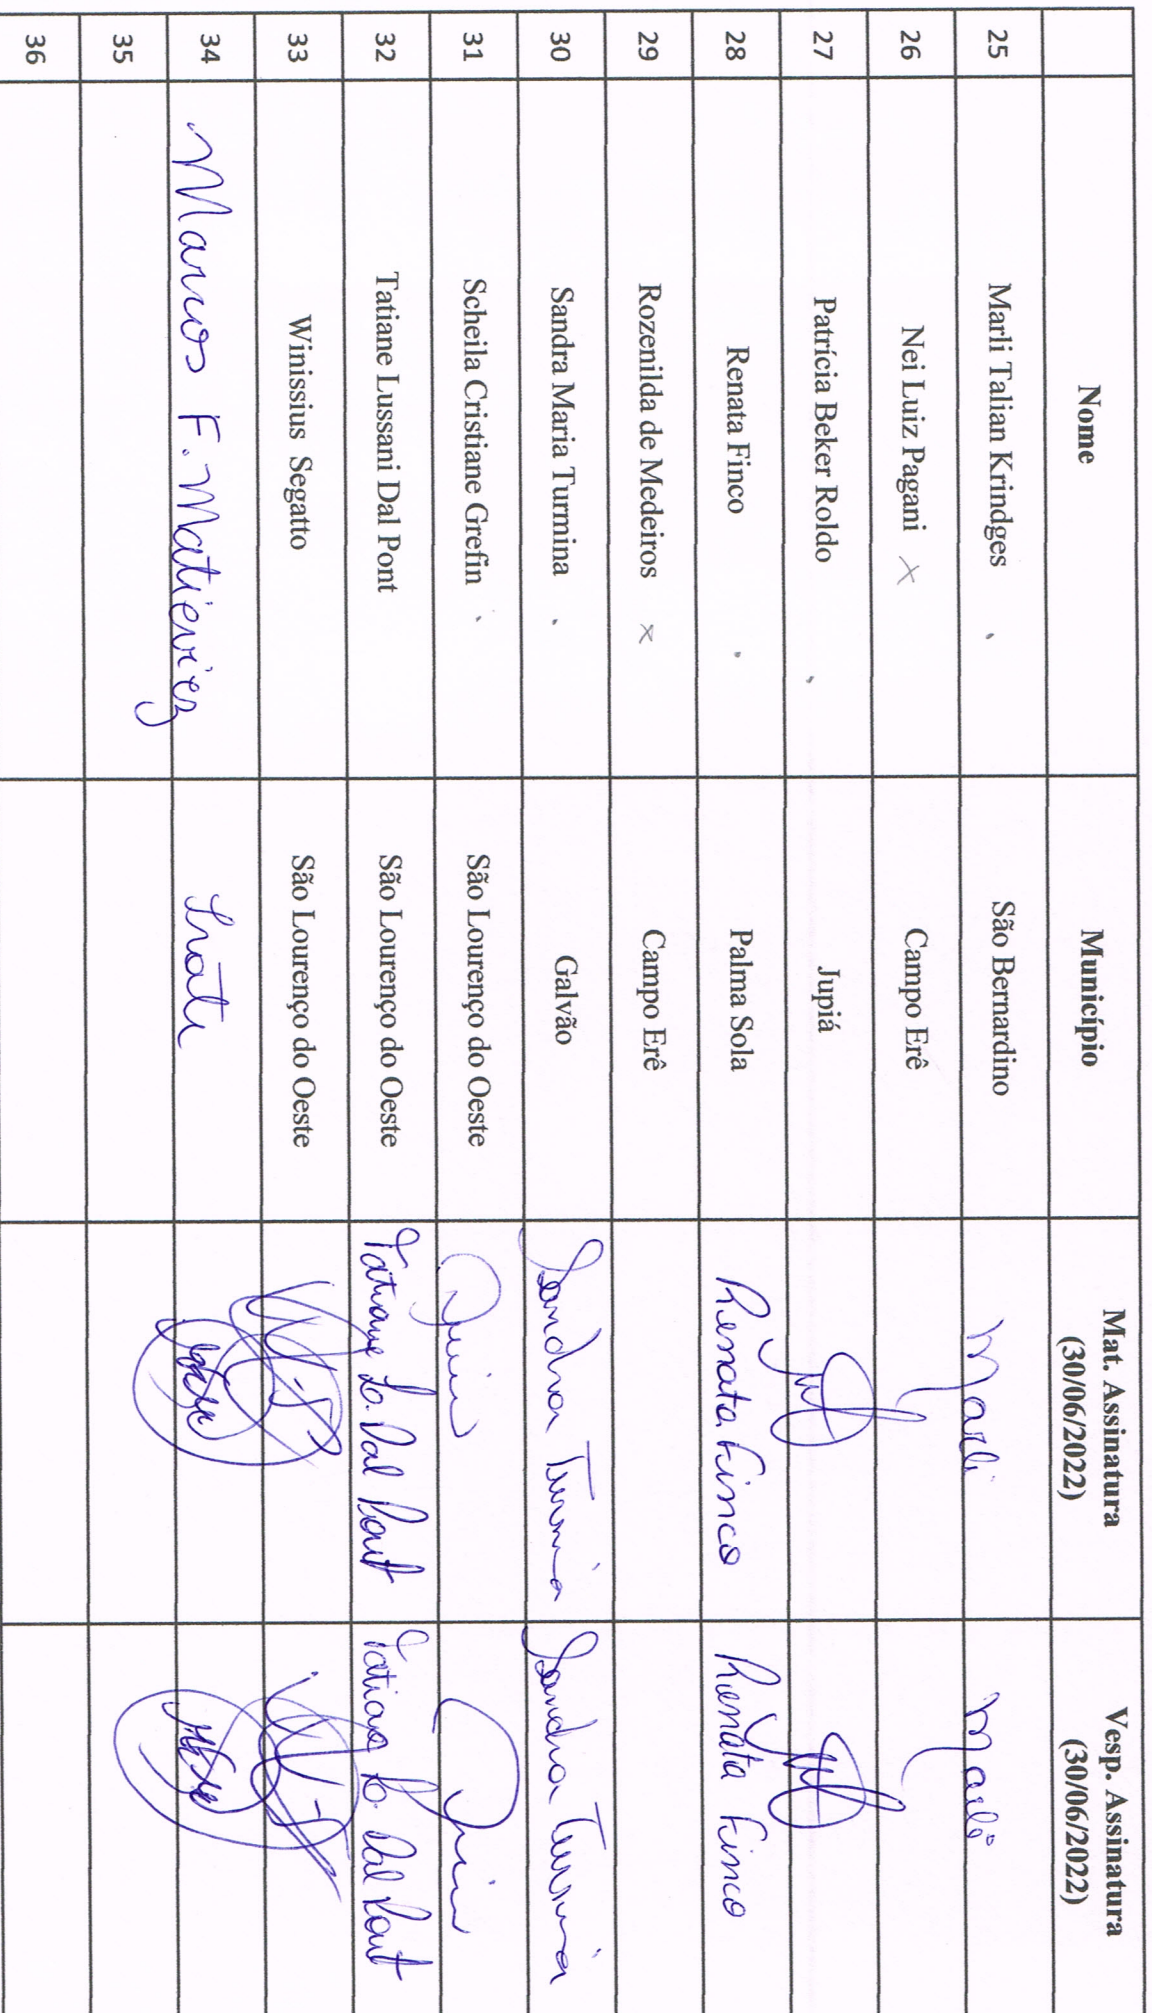 Nome Município Mat. Assinatura Vesp. Assinatura
(30/06/2022) (30/06/2022)
25 Marli Talian Krindges São Bernardino Marli Marli
26 Nei Luiz Pagani x Campo Erê
27 Patrícia Beker Roldo Jupiá
28 Renata Finco Palma Sola Renata Finco Renata Finco
29 Rozenilda de Medeiros x Campo Erê
30 Sandra Maria Turmina Galvão Sandra Turmina Sandra Turmina
31 Scheila Cristiane Grefin São Lourenço do Oeste
32 Tatiane Lussani Dal Pont São Lourenço do Oeste Tatiane L. Dal Pont Tatiane L. Dal Pont
33 Winissius Segatto São Lourenço do Oeste
34 Marcos F. Matievicz
35
36